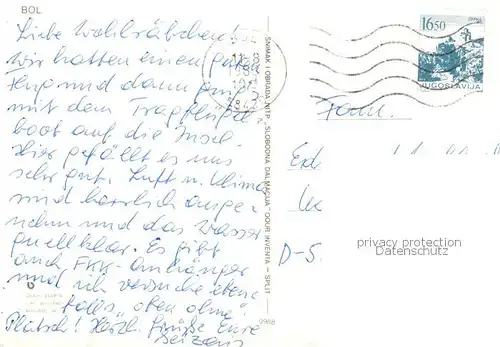 BOL
Liebe Wohlräbchen!
wir hatten einen guten
Flug und dann ging's
mit dem Tragflügel-
boot auf die Insel.
Hier gefällt es uns
sehr gut. Luft u. Klima
sind herrlich ange-
nehm und das Wasser
quellklar. Es gibt
auch FKK-Anhänger
und ich versuche eben-
falls "oben ohne"
Plätsch! Herzl. Grüße Eure
SNIMAK I OBRADA: NITP- SLOBODNA DALMACIJA "OOUR INVENTA - SPLIT
9988
16.50
JUGOSLAVIJA
Fam.
D-5.
privacy protection
Datenschutz